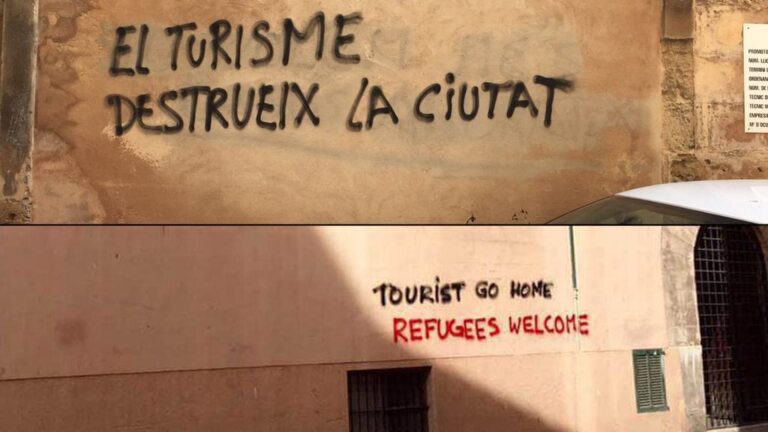 EL TURISME
DESTRUEIX LA CIUTAT
PROMOTO
NÚM. LLIC
TERMINI
ORDENAN
NÚM. DE
TECNIC
TECNIC
EMPRESA
TOURIST GO HOME
REFUGEES WELCOME